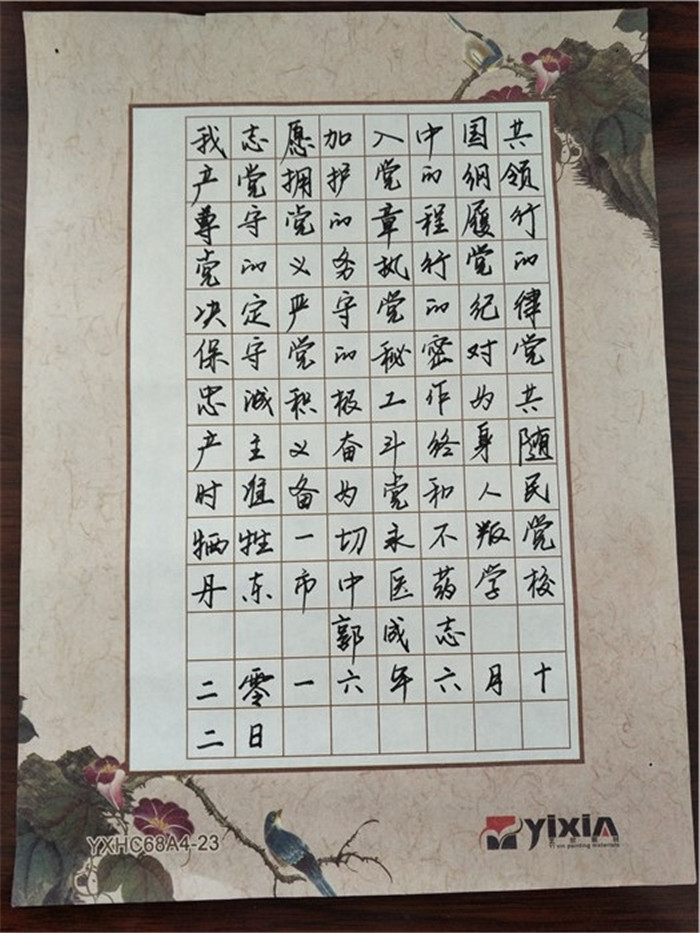 我志愿加入中国共
产党拥护党的纲领
尊守党的章程履行
党的义务执行党的
决定严守党的纪律
保守党的秘密对党
忠诚积极工作为共
产主义奋斗终身随
时准备为党和人民
牺牲一切永不叛党
丹东市中医药学校
郭成志
二零一六年六月十
二日
YXHC68A4-23
yixin
Yi xin painting materials